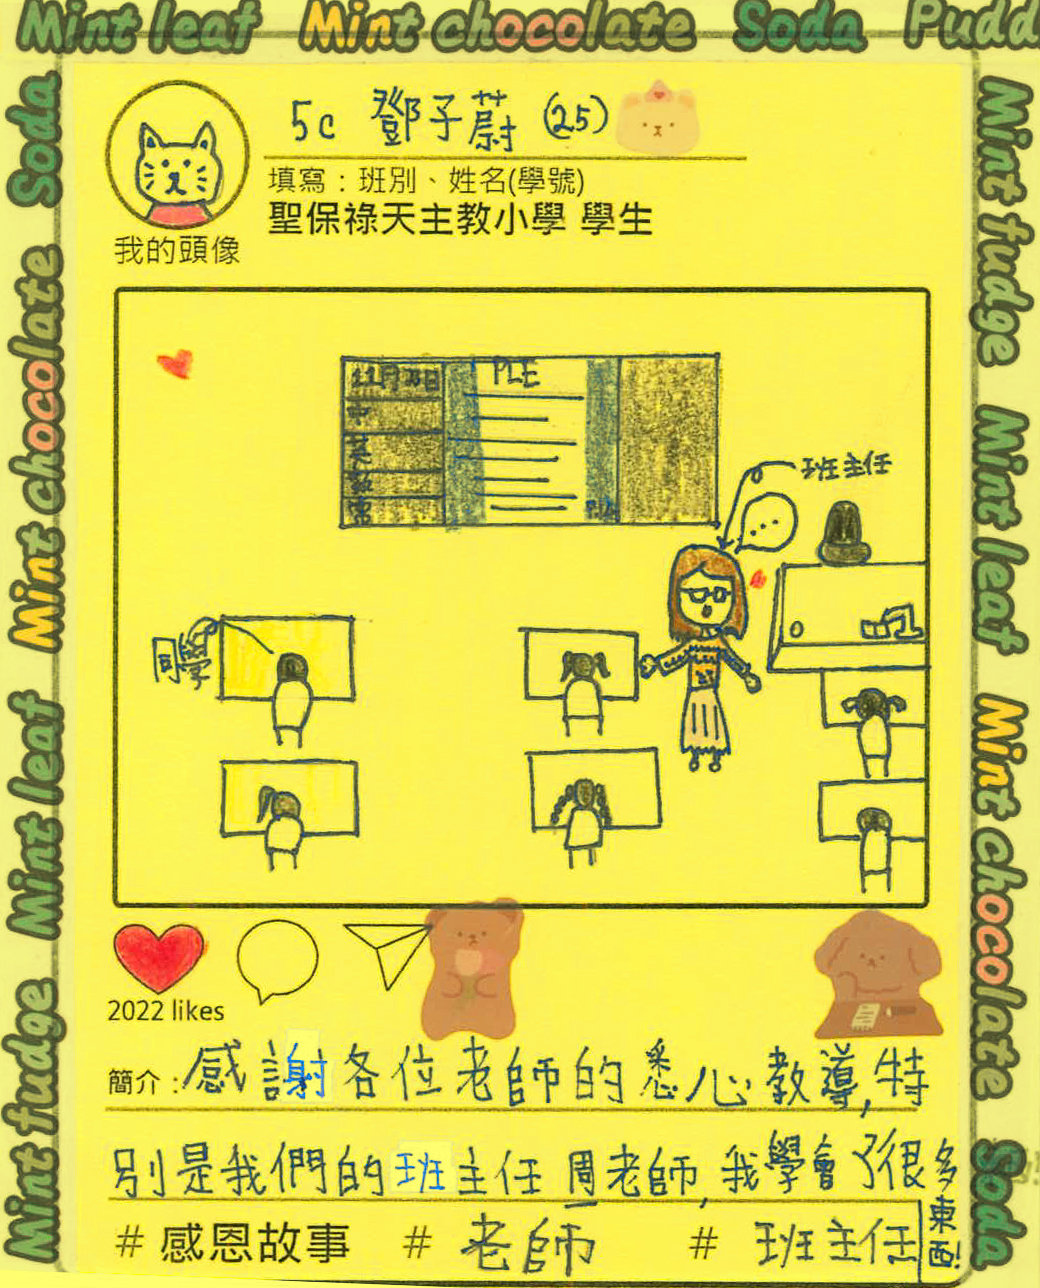 Mint leaf Mint chocolate Soda Pudd
Soda
Mint chocolate
Mint leaf
Mint fudge
Mint fudge
Mint leaf
Mint chocolate
Soda
5c 鄧子蔚 (25)
填寫：班別、姓名(學號)
聖保祿天主教小學 學生
我的頭像
11月 日 PLE
中
英
數
常
班主任
...
同學
2022 likes
簡介：感謝各位老師的悉心教導,特
別是我們的班主任周老師,我學會了很多東西!
#感恩故事 #老師 #班主任